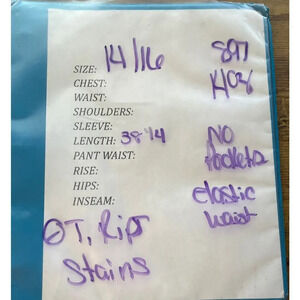 SIZE: 14/16 897
CHEST: 1408
WAIST:
SHOULDERS:
SLEEVE:
LENGTH: 38 1/4 NO
PANT WAIST: Pockets
RISE:
HIPS: elastic
INSEAM: waist
ØT, Rips
Stains